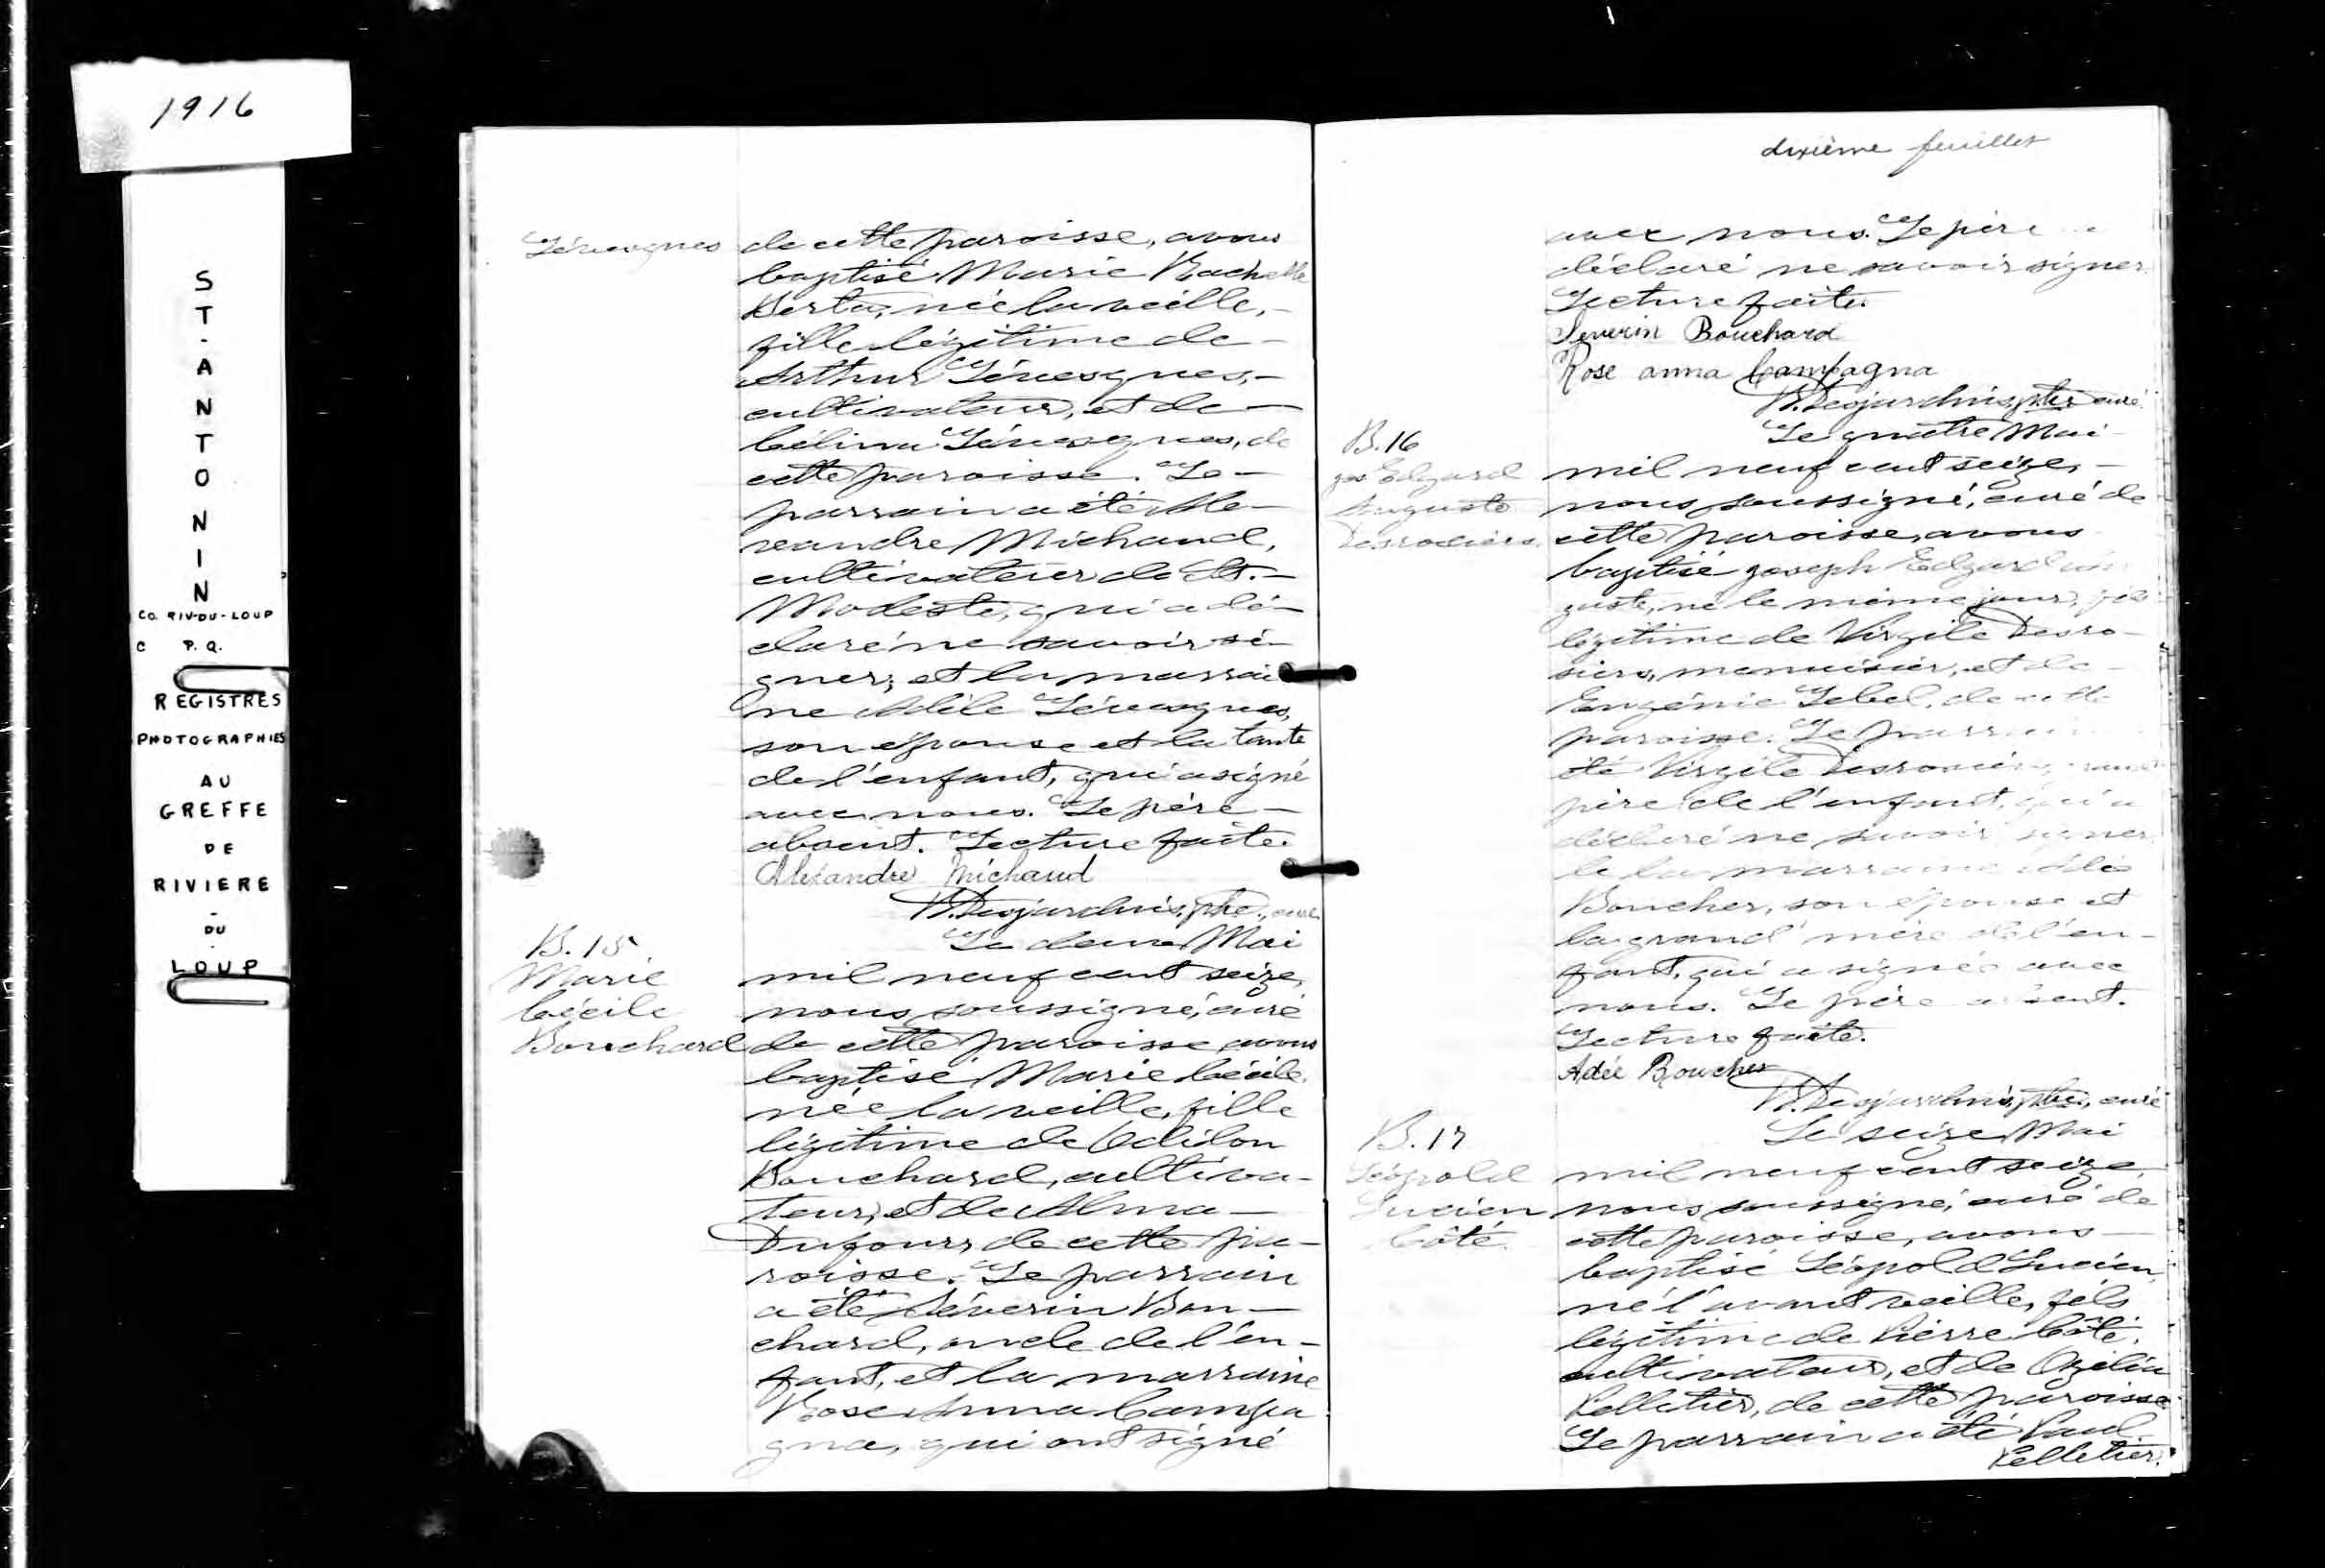 1916
ST-ANTONIN
CO. RIV-DU-LOUP
C P.Q.
REGISTRES
PHOTOGRAPHIES
AU
GREFFE
DE
RIVIERE
-
DU
LOUP
Lévesques
de cette paroisse, avons
baptisé Marie Rachelle
Berta, née la veille,-
fille légitime de-
Arthur Lévesques,-
cultivateur, et de-
Célina Lévesques, de
cette paroisse. Le-
parrain a été Ale-
xandre Michaud,
cultivateur de St.-
Modeste, qui a dé-
claré ne savoir si-
gner, et la marrai
ne Adèle Lévesques,
son épouse et la tante
de l'enfant, qui a signé
avec nous. Le père-
absent. Lecture faite.
Alexandre Michaud
Desjardins, ptre., curé
B.15
Marie
Cécile
Bouchard
Le deux Mai
mil neuf cent seize,
nous soussigné, curé
de cette paroisse avons
baptisé Marie Cécile,
née la veille, fille
légitime de Odilon
Bouchard, cultiva-
teur, et de Alma-
Dufour, de cette pa-
roisse. Le parrain
a été Séverin Bou-
chard, oncle de l'en-
fant, et la marraine
Rose Anna Campa
gna, qui ont signé
dixième feuillet
avec nous. Le père a
déclaré ne savoir signer.
Lecture faite.
Severin Bouchard
Rose anna Campagna
Desjardins, ptre curé.
B.16
Jos Edgard
Auguste
Desrosiers.
Le quatre Mai-
mil neuf cent seize,-
nous soussigné, curé de
cette paroisse, avons
baptisé Joseph Edgard Au
guste, né le même jour, fils
légitime de Virgile Desro-
siers, menuisier, et de-
Eugénie Lebel, de cette
paroisse. Le parrain
été Virgile Desrosiers, grand
père de l'enfant, qui a
déclaré ne savoir signer
le la marraine Adée
Boucher, son épouse et
la grand' mère de l'en-
fant, qui a signée avec
nous. Le père absent.
Lecture faite.
Adée Boucher
Desjardins, ptre., curé
B.17
Léopold
Lucien
Côté.
Le seize Mai
mil neuf cent seize,
nous soussigné, curé de
cette paroisse, avons-
baptisé Léopold Lucien,
né l'avant veille, fils
légitime de Pierre Côté,
cultivateur, et de Ozélia
Pelletier, de cette paroisse
Le parrain a été Paul
Pelletier.